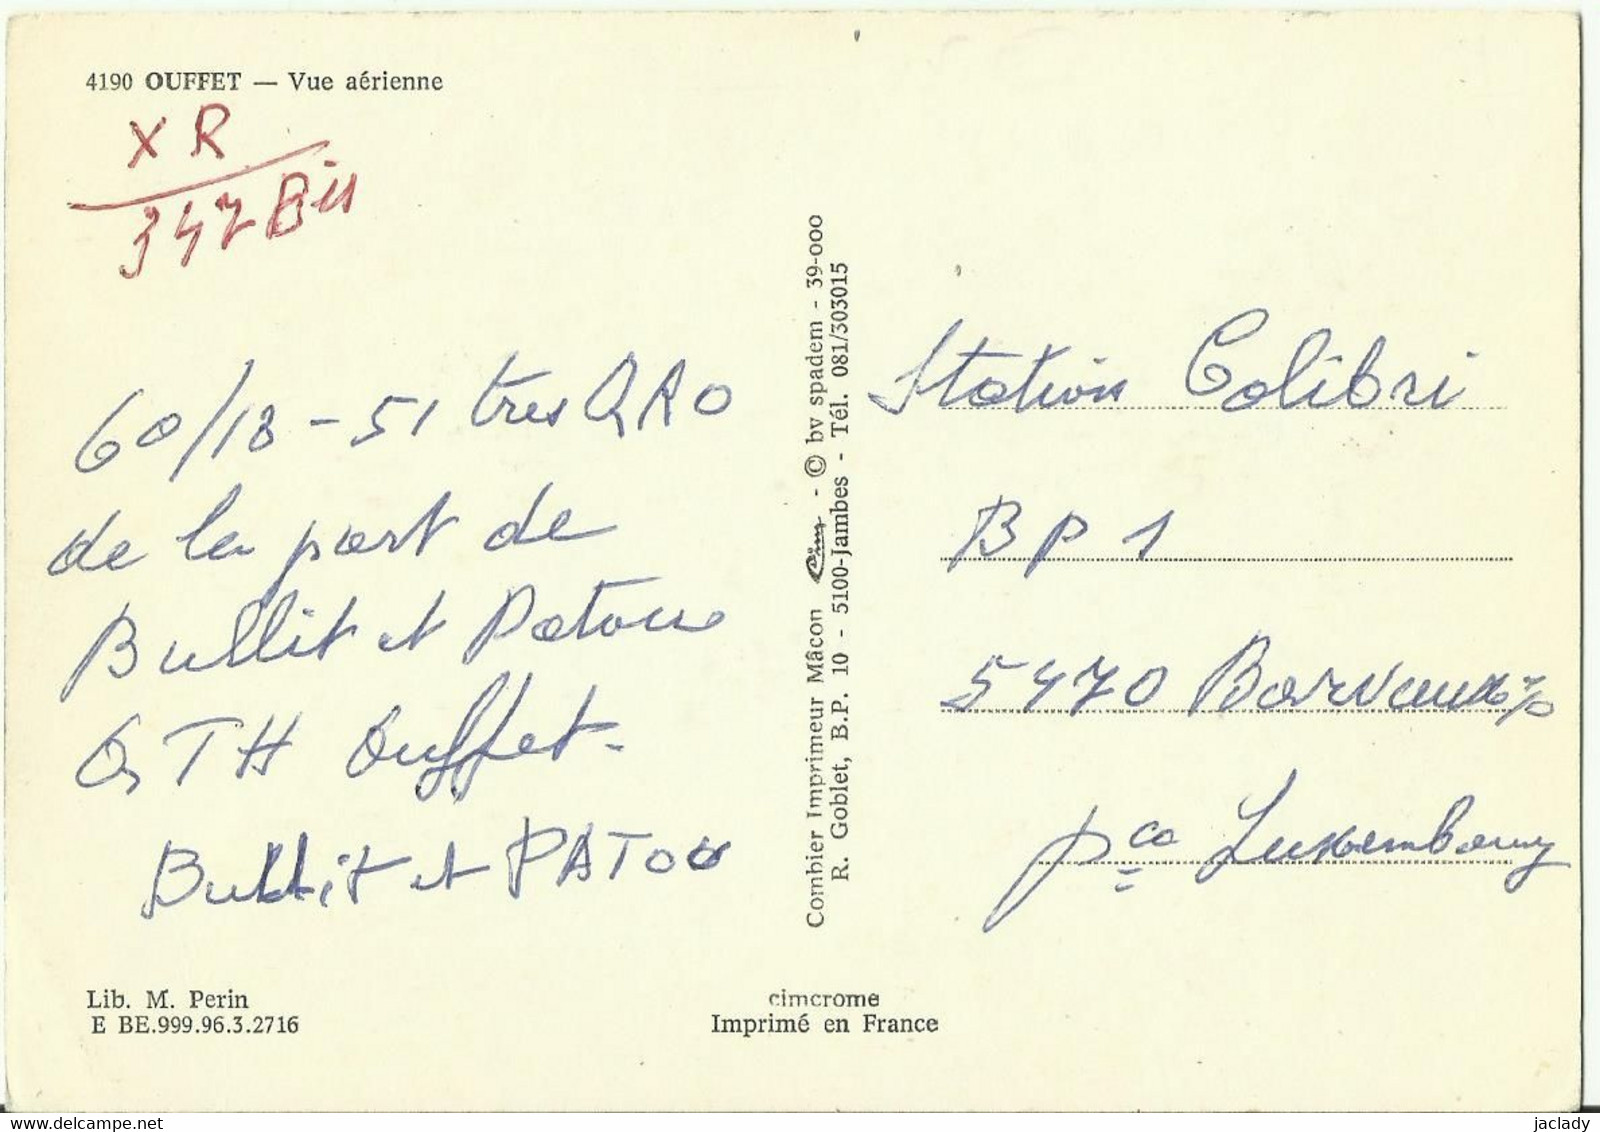 4190 OUFFET — Vue aérienne
X R
347 Bis
60/18 - 51 tres QRO
de la part de
Bullit et Patou
QTH Ouffet -
Bullit et PATOU
Lib. M. Perin
E BE.999.96.3.2716
Combier Imprimeur Mâcon Cim - © by spadem - 39-000
R. Goblet, B.P. 10 - 5100-Jambes - Tél. 081/303015
cimcrome
Imprimé en France
Station Colibri
BP 1
5470 Barvaux
pce Luxembourg
jaclady